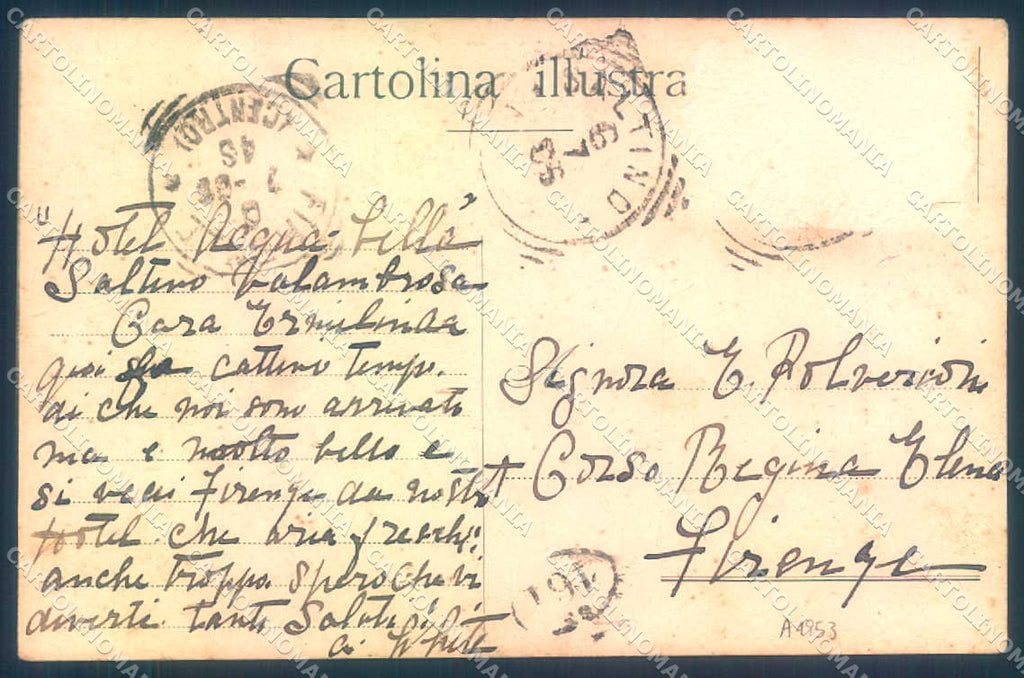 Cartolina illustra
SALTINO
(CENTRO)
"Hotel Acqua-bella"
Saltino Valambrosa
Cara Ermilinda
qui fa cattivo tempo.
di che noi sono arrivati
ma e molto bello e
si vedi Firenze da nostr
Hotel che aria fresch
anche troppo. spero che vi
diverti. tanti Saluti di
Signora E. Polverini
Corso Regina Elena
Firenze
161
A 1953
CARTOLINOMANIA